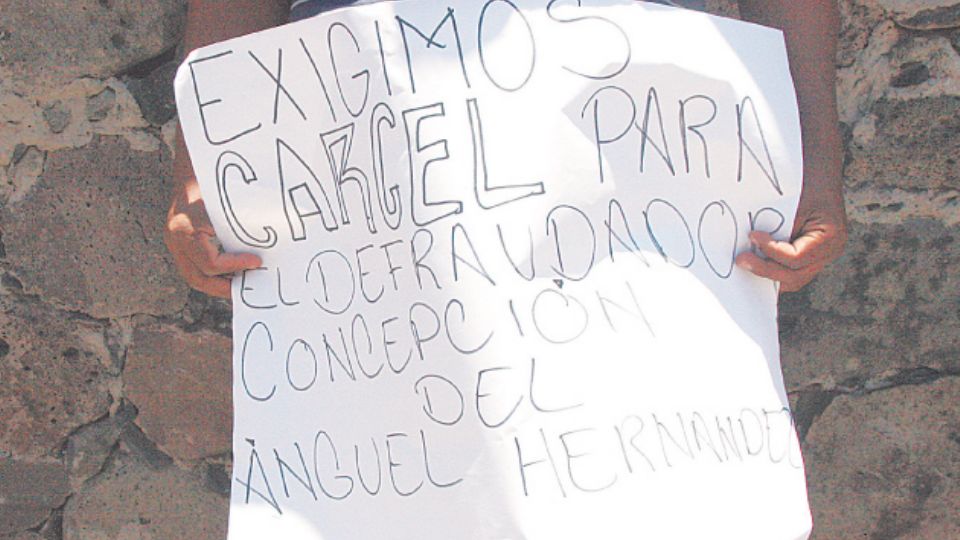 EXIGIMOS
CARCEL PARA
EL DEFRAUDADOR
CONCEPCIÓN
DEL
ÁNGUEL HERNANDEZ